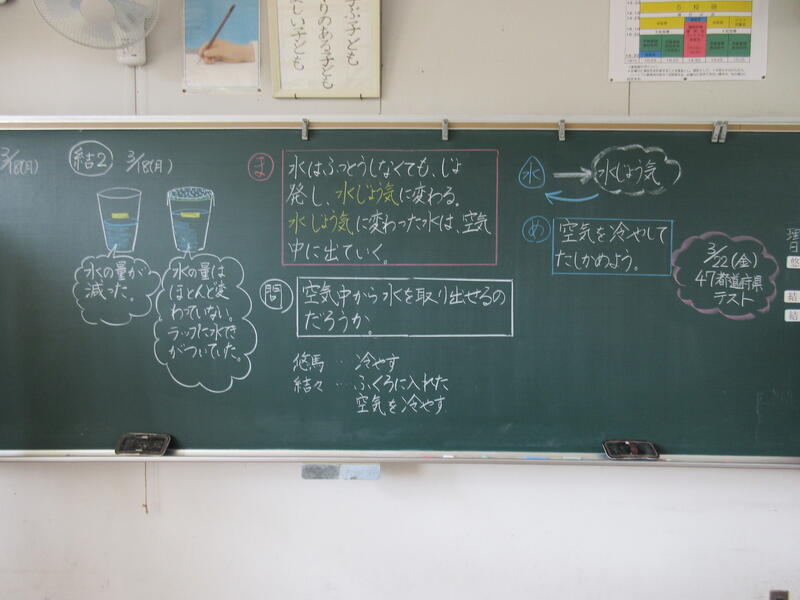 ぶ子ども
りのある子ども
しい子ども
5校時
3/18(月)
結2 3/18(月)
水の量が
減った。
水の量は
ほとんど変
わっていない。
ラップに水てき
がついていた。
ま
水はふっとうしなくても、じょ
発し、水じょう気に変わる。
水じょう気に変わった水は、空気
中に出ていく。
問
空気中から水を取り出せるの
だろうか。
悠馬…冷やす
結々…ふくろに入れた
空気を冷やす
水
水じょう気
め
空気を冷やして
たしかめよう。
3/22(金)
47都道府県
テスト
悠
結
結